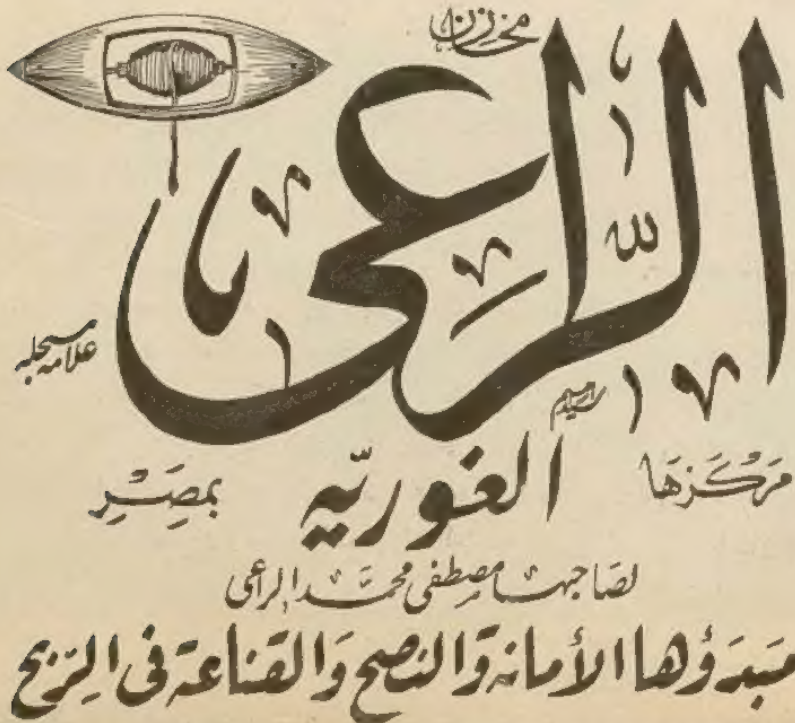 مخازن
الراعى
علامه مسجله
مركزها الغوريّه بمصر
لصاحبها مصطفى محمد الراعى
مبدؤها الأمانة والنصح والقناعة فى الربح